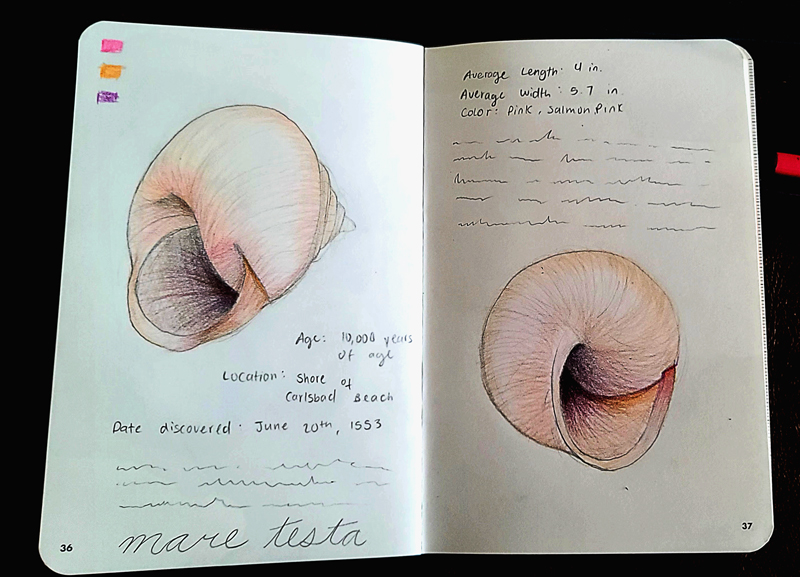 Age: 10,000 years
of age
Location: Shore of
Carlsbad Beach
Date discovered: June 20th, 1553
mare testa
36
Average Length: 4 in.
Average width: 5.7 in.
Color: Pink, Salmon Pink
37